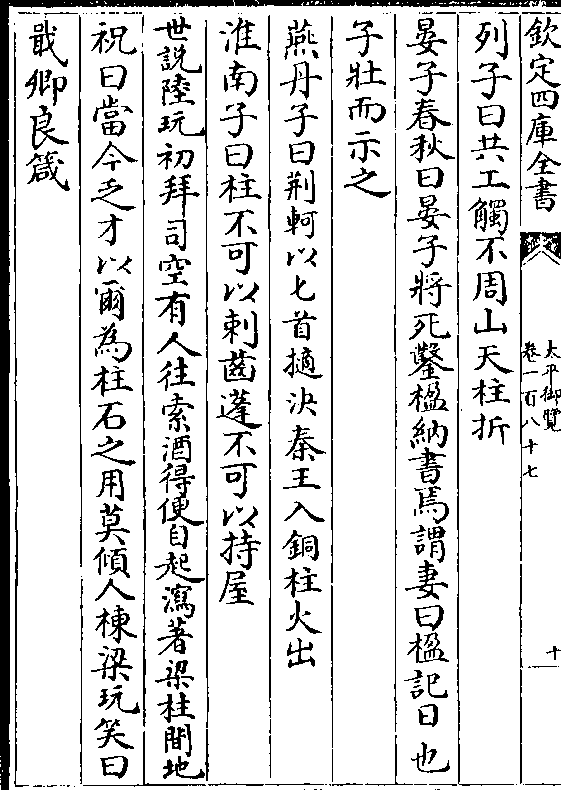 欽定四庫全書
太平御覽
卷一百八十七
十
列子曰共工觸不周山天柱折
晏子春秋曰晏子將死鑿楹納書焉謂妻曰楹記曰也
子壯而示之
燕丹子曰荆軻以匕首擿決秦王入銅柱火出
淮南子曰柱不可以刺齒蓬不可以持屋
世説陸玩初拜司空有人往索酒得便自起瀉著梁柱間地
祝曰當今乏才以爾為柱石之用莫傾人棟梁玩笑曰
戢卿良箴